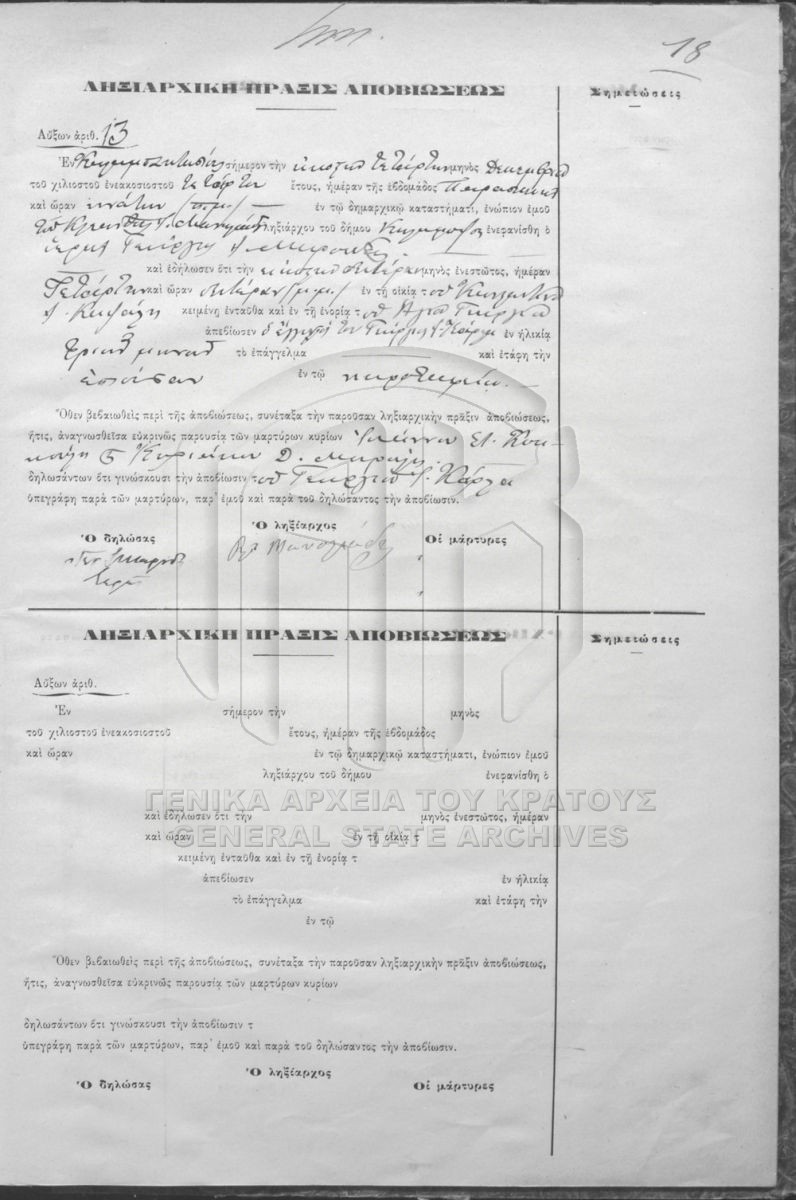 18
ΛΗΞΙΑΡΧΙΚΗ ΠΡΑΞΙΣ ΑΠΟΒΙΩΣΕΩΣ
Σημειώσεις
Αὔξων ἀριθ. 13
Ἐν σήμερον τὴν εἰκοστὴν τετάρτην μηνὸς Δεκεμβρίου
τοῦ χιλιοστοῦ ἐνεακοσιοστοῦ τετάρτου ἔτους, ἡμέραν τῆς ἑβδομάδος Παρασκευὴν
καὶ ὥραν ἐννάτην π.μ. ἐν τῷ δημαρχικῷ καταστήματι, ἐνώπιον ἐμοῦ
τοῦ ληξιάρχου τοῦ δήμου ἐνεφανίσθη ὁ
ἱερεὺς Γεώργιος
καὶ ἐδήλωσεν ὅτι τὴν εἰκοστὴν δευτέραν μηνὸς ἐνεστῶτος, ἡμέραν
Τετάρτην καὶ ὥραν δευτέραν μ.μ. ἐν τῇ οἰκίᾳ τοῦ Κωνσταντίνου
κειμένῃ ἐνταῦθα καὶ ἐν τῇ ἐνορίᾳ τοῦ Ἁγίου Γεωργίου
ἀπεβίωσεν ὁ ἔγγονός του Γεώργιος ἐν ἡλικίᾳ
τριῶν μηνῶν τὸ ἐπάγγελμα καὶ ἐτάφη τὴν
ἐπιοῦσαν ἐν τῷ νεκροταφείῳ.
Ὅθεν βεβαιωθεὶς περὶ τῆς ἀποβιώσεως, συνέταξα τὴν παροῦσαν ληξιαρχικὴν πρᾶξιν ἀποβιώσεως,
ἥτις, ἀναγνωσθεῖσα εὐκρινῶς παρουσίᾳ τῶν μαρτύρων κυρίων Ἰωάννου
Κυριάκου Δ.
δηλωσάντων ὅτι γινώσκουσι τὴν ἀποβίωσιν τοῦ Γεωργίου
ὑπεγράφη παρὰ τῶν μαρτύρων, παρ' ἐμοῦ καὶ παρὰ τοῦ δηλώσαντος τὴν ἀποβίωσιν.
Ὁ δηλώσας
Ὁ ληξίαρχος
Οἱ μάρτυρες
ΛΗΞΙΑΡΧΙΚΗ ΠΡΑΞΙΣ ΑΠΟΒΙΩΣΕΩΣ
Σημειώσεις
Αὔξων ἀριθ.
Ἐν σήμερον τὴν μηνὸς
τοῦ χιλιοστοῦ ἐνεακοσιοστοῦ ἔτους, ἡμέραν τῆς ἑβδομάδος
καὶ ὥραν ἐν τῷ δημαρχικῷ καταστήματι, ἐνώπιον ἐμοῦ
ληξιάρχου τοῦ δήμου ἐνεφανίσθη ὁ
ΓΕΝΙΚΑ ΑΡΧΕΙΑ ΤΟΥ ΚΡΑΤΟΥΣ
καὶ ἐδήλωσεν ὅτι τὴν μηνὸς ἐνεστῶτος, ἡμέραν
GENERAL STATE ARCHIVES
καὶ ὥραν ἐν τῇ οἰκίᾳ τ
κειμένῃ ἐνταῦθα καὶ ἐν τῇ ἐνορίᾳ τ
ἀπεβίωσεν ἐν ἡλικίᾳ
τὸ ἐπάγγελμα καὶ ἐτάφη τὴν
ἐν τῷ
Ὅθεν βεβαιωθεὶς περὶ τῆς ἀποβιώσεως, συνέταξα τὴν παροῦσαν ληξιαρχικὴν πρᾶξιν ἀποβιώσεως,
ἥτις, ἀναγνωσθεῖσα εὐκρινῶς παρουσίᾳ τῶν μαρτύρων κυρίων
δηλωσάντων ὅτι γινώσκουσι τὴν ἀποβίωσιν τ
ὑπεγράφη παρὰ τῶν μαρτύρων, παρ' ἐμοῦ καὶ παρὰ τοῦ δηλώσαντος τὴν ἀποβίωσιν.
Ὁ δηλώσας
Ὁ ληξίαρχος
Οἱ μάρτυρες